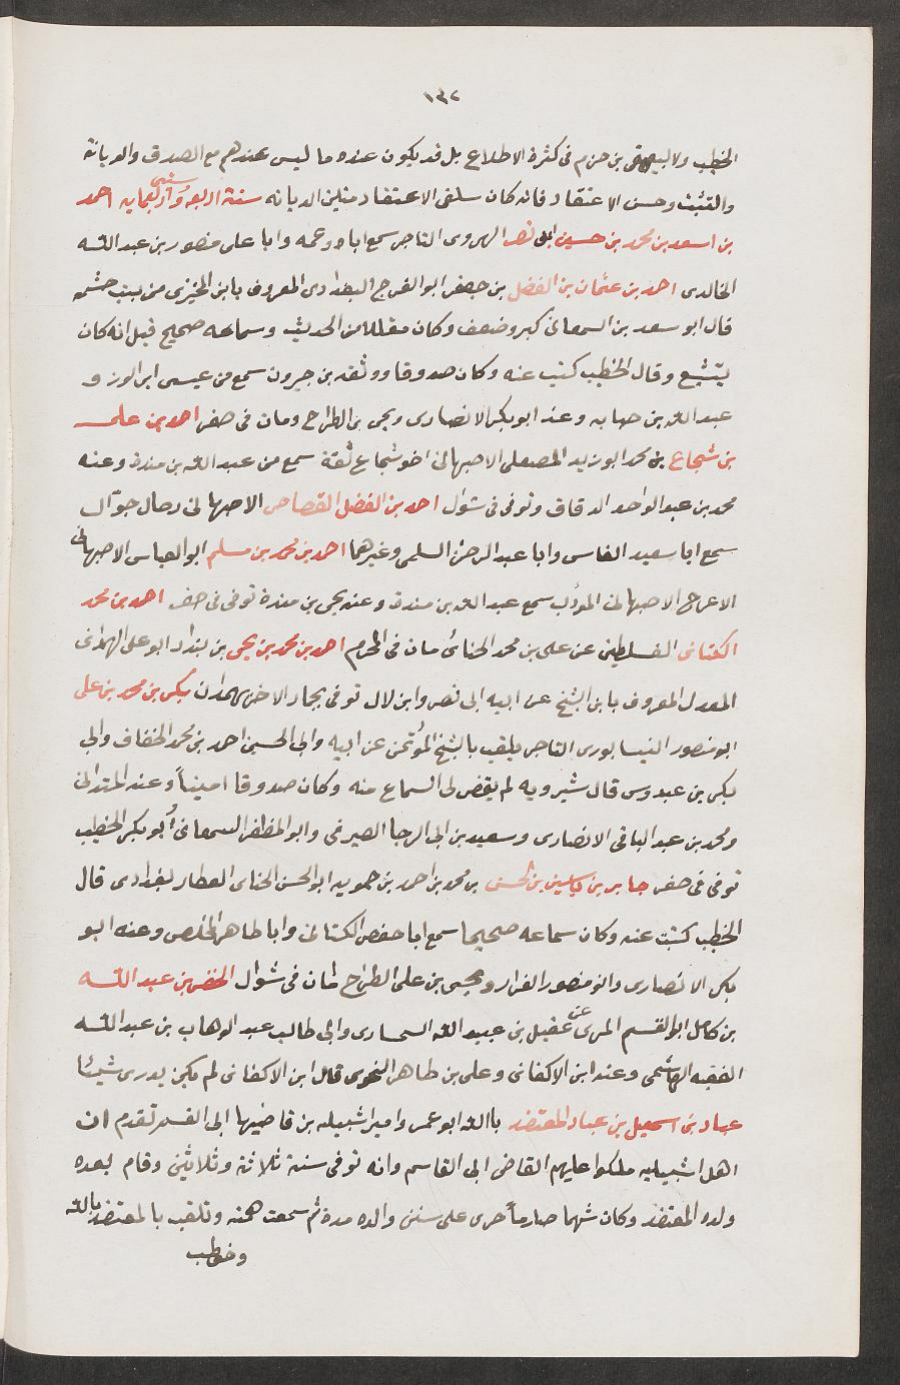 ١٣٢
الخطيب ولا لبيهقى بن حزم فى كثرة الاطلاع بل قد يكون عنده ما ليس عندهم مع الصدق والديانة
والتثبت وحسن الاعتقاد فانه كان سلفى الاعتقاد متين الديانه سنة اربعه وستين واربعمايه احمد
بن اسعد بن محمد بن حسين ابى نصر الهروى التاجر سمع اباه وعمه وابا على منصور بن عبد الله
الخالدى احمد بن عثمان بن الفضل بن جعفر ابو الفرج البغدادى المعروف بابن المخبزى من بيت حشمه
قال ابو سعد بن السمعانى كبر وضعف وكان مقلا من الحديث وسماعه صحيح قيل انه كان
يتشيع وقال الخطيب كتبت عنه وكان صدوقا ووثقه بن خيرون سمع من عيسى ابن الوزير
عبد الله بن حبابه وعنه ابو بكر الانصارى ويحى بن الطراح ومات فى صفر احمد بن على
بن شجاع بن محمد ابو زيد المصقلى الاصبهانى اخو شجاع ثقة سمع من عبد الله بن مندة وعنه
محمد بن عبد الواحد الدقاق وتوفى فى شوال احمد بن الفضل القصاص الاصبهانى رحال جوّال
سمع ابا سعيد النقاس وابا عبد الرحمن السلمى وغيرهما احمد بن محمد بن مسلم ابو العباس الاصبهانى
الاعرج الاصبهانى المؤدب سمع عبد الله بن مندة وعنه يحى بن مندة توفى فى صفر احمد بن محمد
الكتانى الفلسطينى عن على بن محمد الحنائى مات فى المحرم احمد بن محمد بن يحى بن بندار ابو على الهمدانى
المعدل المعروف بابن الشيخ عن ابيه ابى نصر وابن لال توفى بجماد الاخرى بهمدان بكر بن محمد بن على
ابو منصور النيسابورى التاجر يلقب بالشيخ المؤتمن عن ابيه وابى الحسين احمد بن محمد الخفاف وابى
بكر بن عبدوس قال شيرويه لم يقض لى السماع منه وكان صدوقا امينا وعنه
ومحمد بن عبد الباقى الانصارى وسعيد بن ابى الرجا الصيرفى وابو المظفر السمعانى أبو بكر الخطيب
توفى فى صفر جابر بن ياسين بن الحسن بن محمد بن احمد بن حمويه ابو الحسن الحنائى العطار بغدادى قال
الخطيب كتبت عنه وكان سماعه صحيحا سمع ابا حفص الكتانى وابا طاهر المخلص وعنه ابو
بكر الانصارى وابو منصور القزاز ويحيى بن على الطراح مات فى شوال الخضر بن عبد الله
بن كامل ابو القسم المرى عن عقيل بن عبيد الله السمسارى وابى طالب عبد الوهاب بن عبد الله
الفقيه الهاشمى وعنه ابن الاكفانى وعلى بن طاهر النحوى قال ابن الاكفانى لم يكن يدرى شيئا
عباد بن اسمعيل بن عباد المعتضد باالله ابو عمر وامير اشبيله بن قاضيها ابى القسم تقدم ان
اهل اشبيليه ملكوا عليهم القاضى ابى القاسم وانه توفى سنة ثلاثة وثلاثين وقام بعده
ولده المعتضد وكان شهما صارما جرى على سنن والده مدة ثم سمحت همته وتلقب بالمعتضد بالله
وخطب